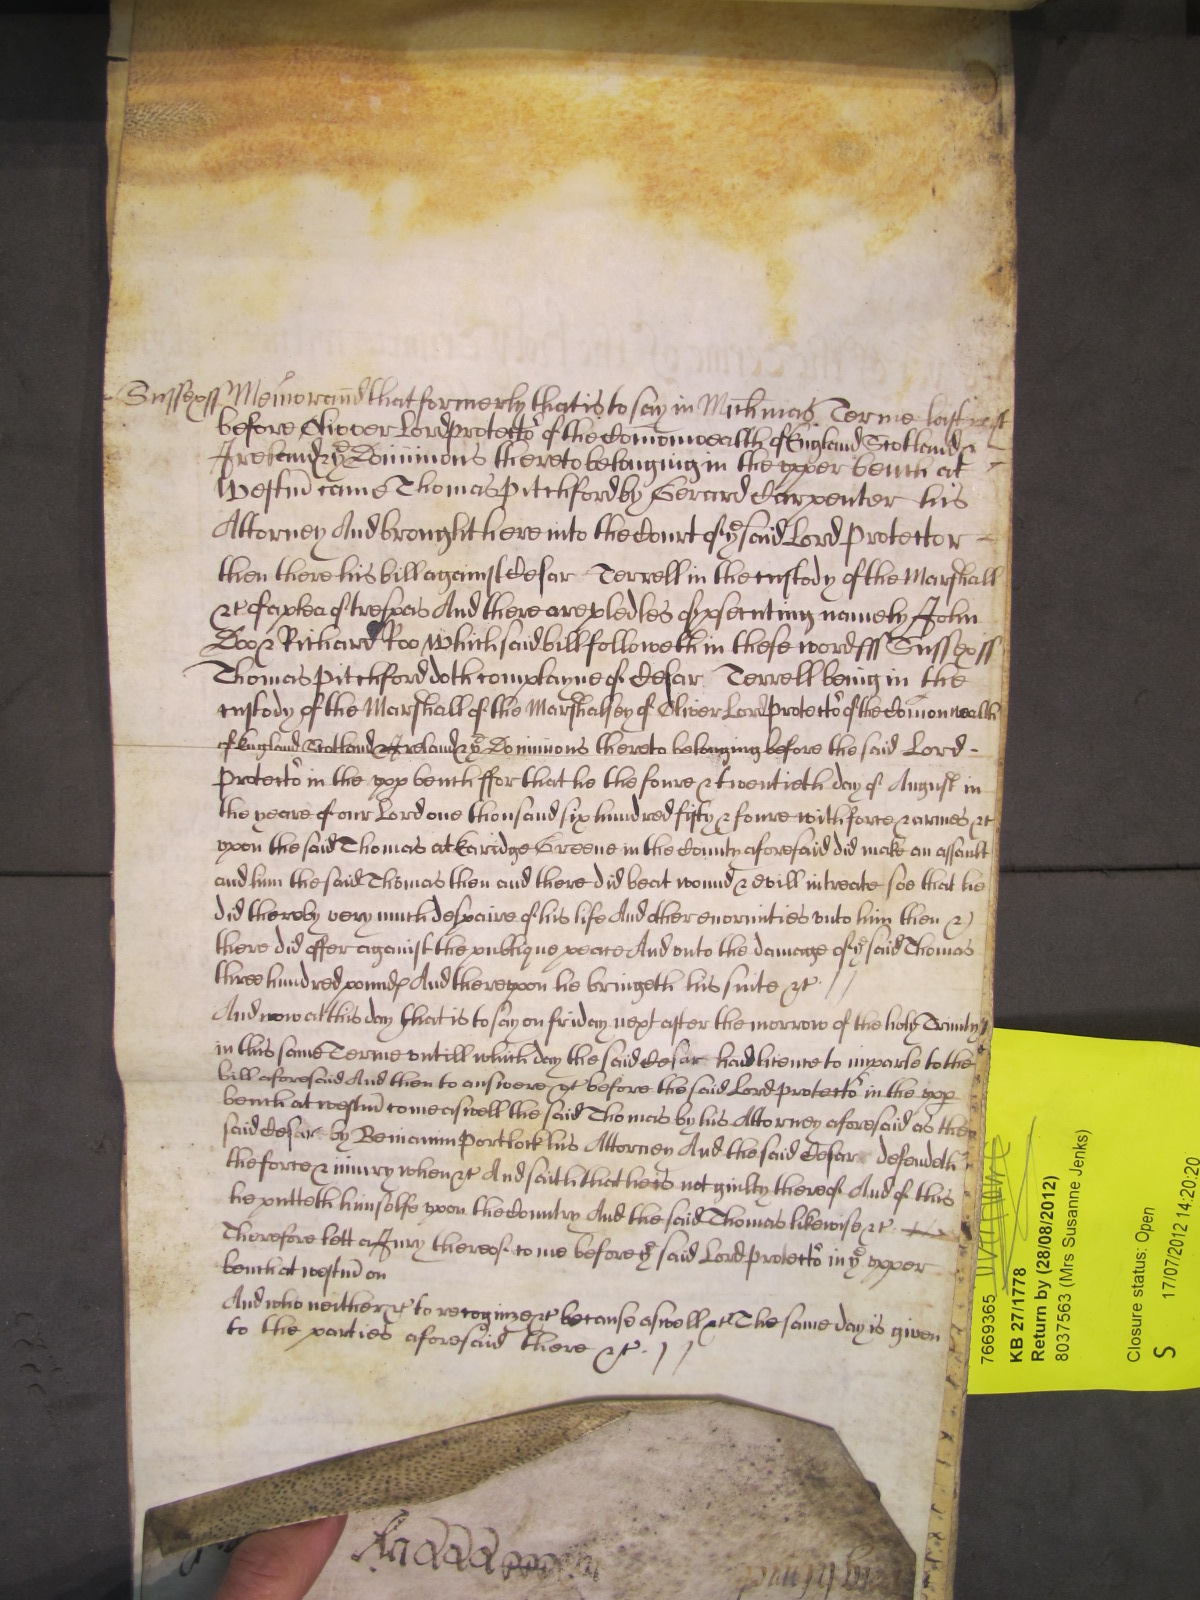 Sussex ss Memorand that formerly that is to say in Mich'mas Terme last past
before Oliver Lord Protector of the Comonwealth of England Scotland &
Ireland & ye Dominions thereto belonging in the upper bench at
Westm' came Thomas Pitchford by Gerard Carpenter his
Attorney And brought here into the Court of ye said Lord Protector
then there his bill against Cesar Terrell in the custody of the Marshall
&c of a plea of trespas And there are pledges of p'secuting namely John
Doo & Richard Roo Which said bill followeth in these words ss Sussex ss
Thomas Pitchford doth complayne of Cesar Terrell being in the
custody of the Marshall of the Marshalsey of Oliver Lord Protector of the Comonwealth
of England Scotland & Ireland & ye Dominions thereto belonging before the said Lord
Protector in the upp bench ffor that he the foure & twentieth day of August in
the yeare of our Lord one thousand six hundred fifty & foure with force & armes &c
upon the said Thomas at Karidge Greene in the County aforesaid did make an assault
and him the said Thomas then and there did beat wound & evill intreate soe that he
did thereby very much despaire of his life And other enormities unto him then &
there did offer against the publique peace And unto the damage of ye said Thomas
three hundred pounds And thereupon he bringeth his suite &c
And now at this day that is to say on friday next after the morrow of the holy Trinity
in this same Terme untill which day the said Cesar had licence to imparle to the
bill aforesaid And then to answere &c before the said Lord Protector in the upp
bench at westm' come aswell the said Thomas by his Attorney aforesaid as the
said Cesar by Beniamin Portlock his Attorney And the said Cesar defendeth
the force & iniury when &c And saith that he is not guilty thereof And of this
he putteth himselfe upon the Country And the said Thomas likewise &c
Therefore lett a Jury thereof come before ye said Lord Protector in ye upper
bench at westm' on
And who neither &c to recognize &c because aswell &c The same day is given
to the parties aforesaid there &c
7669365
KB 27/1778
Return by (28/08/2012)
8037563 (Mrs Susanne Jenks)
Closure status: Open
S 17/07/2012 14:20:20